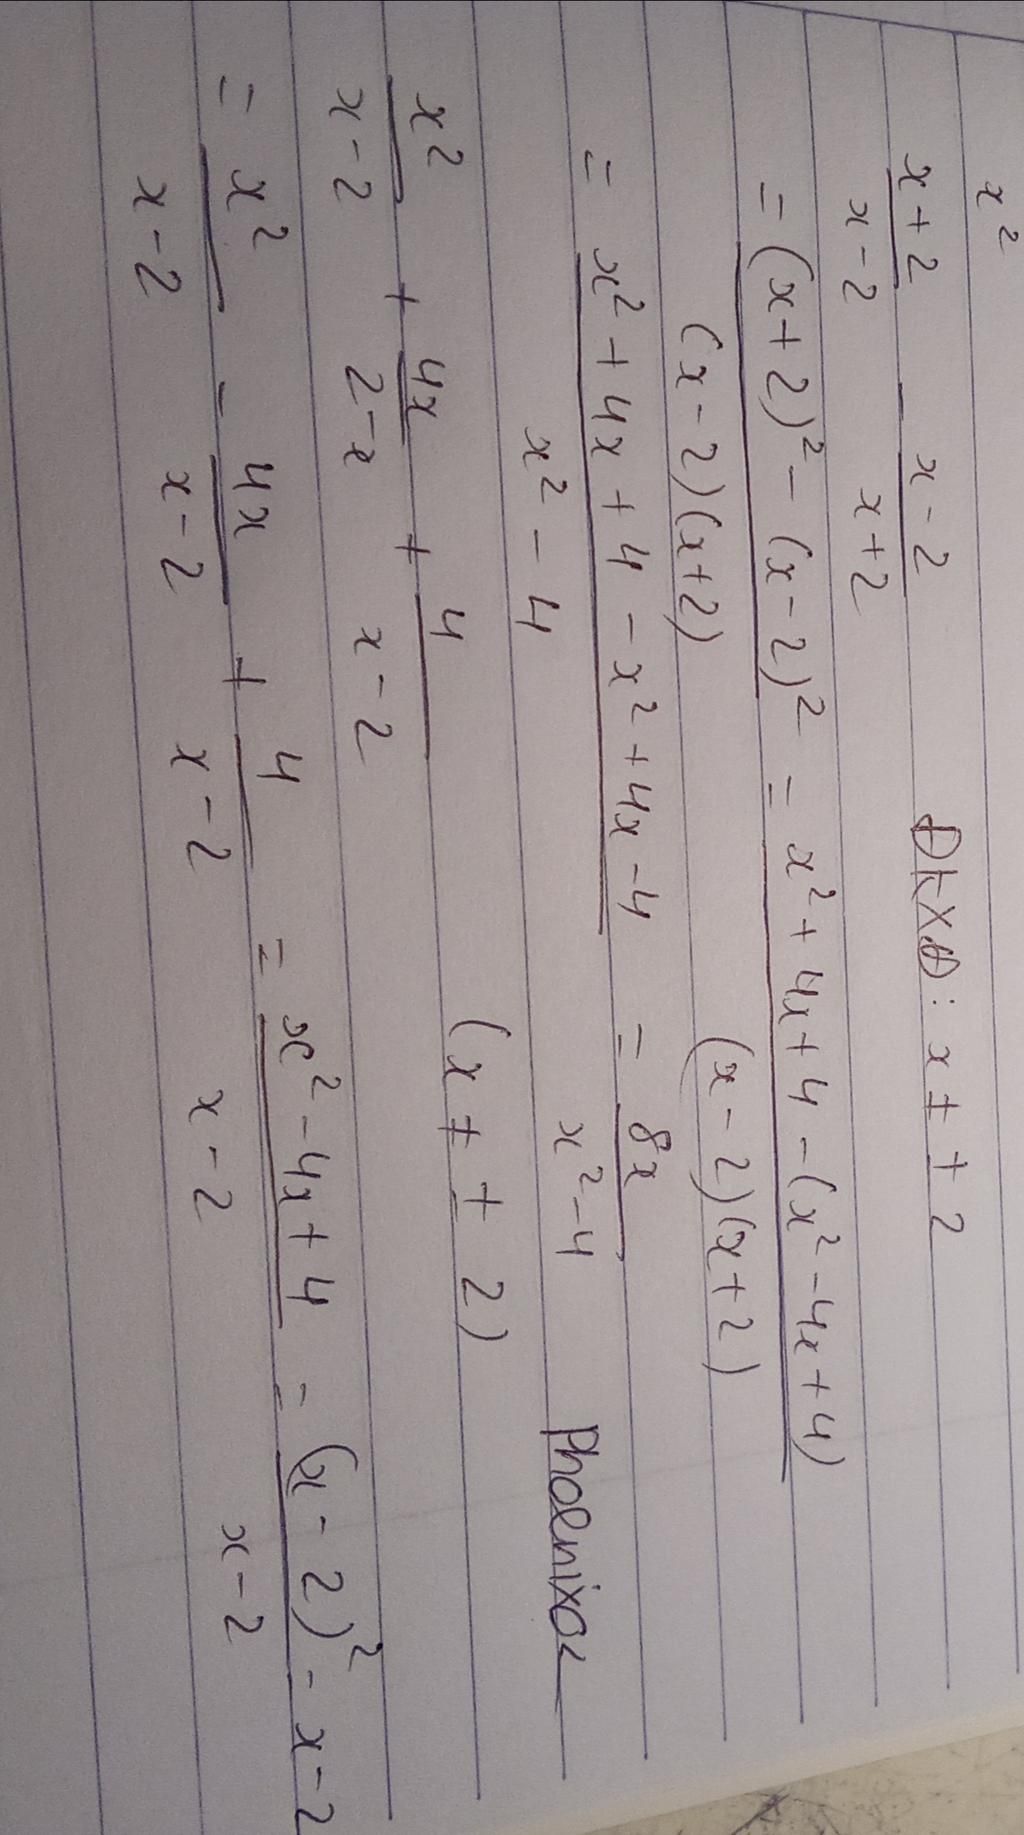 x²
x+2/x-2 - x-2/x+2 ĐKXĐ: x ≠ ± 2
= (x+2)² - (x-2)²/(x-2)(x+2) = x² + 4x + 4 - (x² - 4x + 4)/(x-2)(x+2)
= x² + 4x + 4 - x² + 4x - 4/x² - 4 = 8x/x² - 4 Phoenixoc
x²/x-2 + 4x/2-x + 4/x-2 (x ≠ ± 2)
= x²/x-2 - 4x/x-2 + 4/x-2 = x² - 4x + 4/x-2 = (x-2)²/x-2 = x-2